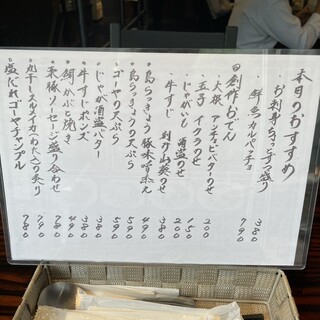 本日のおすすめ
・お刺身ちょっとずつ盛り 380
・鮮魚カルパッチョ 790
@創作おでん
・大根 アンチョビバターのせ 200
・玉子 イクラのせ 150
・じゃがいも 酒盗のせ 200
・牛すじ 刻み山葵のせ 380
・島らっきょう 豚味噌添え 490
・島らっきょうの天ぷら 590
・ゴーヤの天ぷら 590
・じゃが酒盗バター 380
・牛すじポンズ 380
・鯛かぶと焼き 490
・楽豚ソーセージ盛り合わせ 780
・丸干しスルメイカ(わた入り)炙り 790
・塩だれゴーヤチャンプル 780